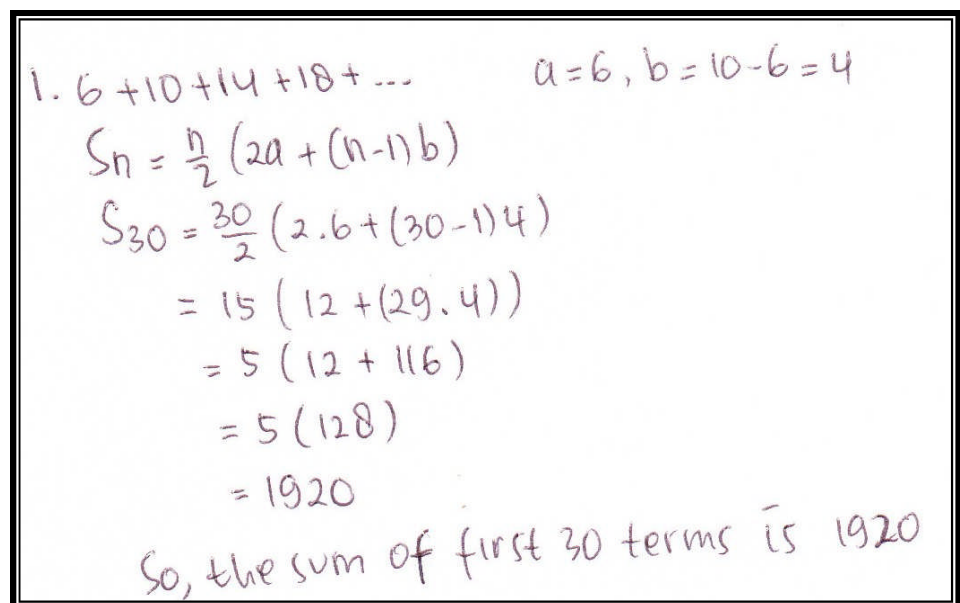 1. 6 + 10 + 14 + 18 + ... a = 6, b = 10 - 6 = 4
Sn = n/2 (2a + (n-1)b)
S30 = 30/2 (2.6 + (30-1)4)
= 15 (12 + (29.4))
= 5 (12 + 116)
= 5 (128)
= 1920
So, the sum of first 30 terms is 1920